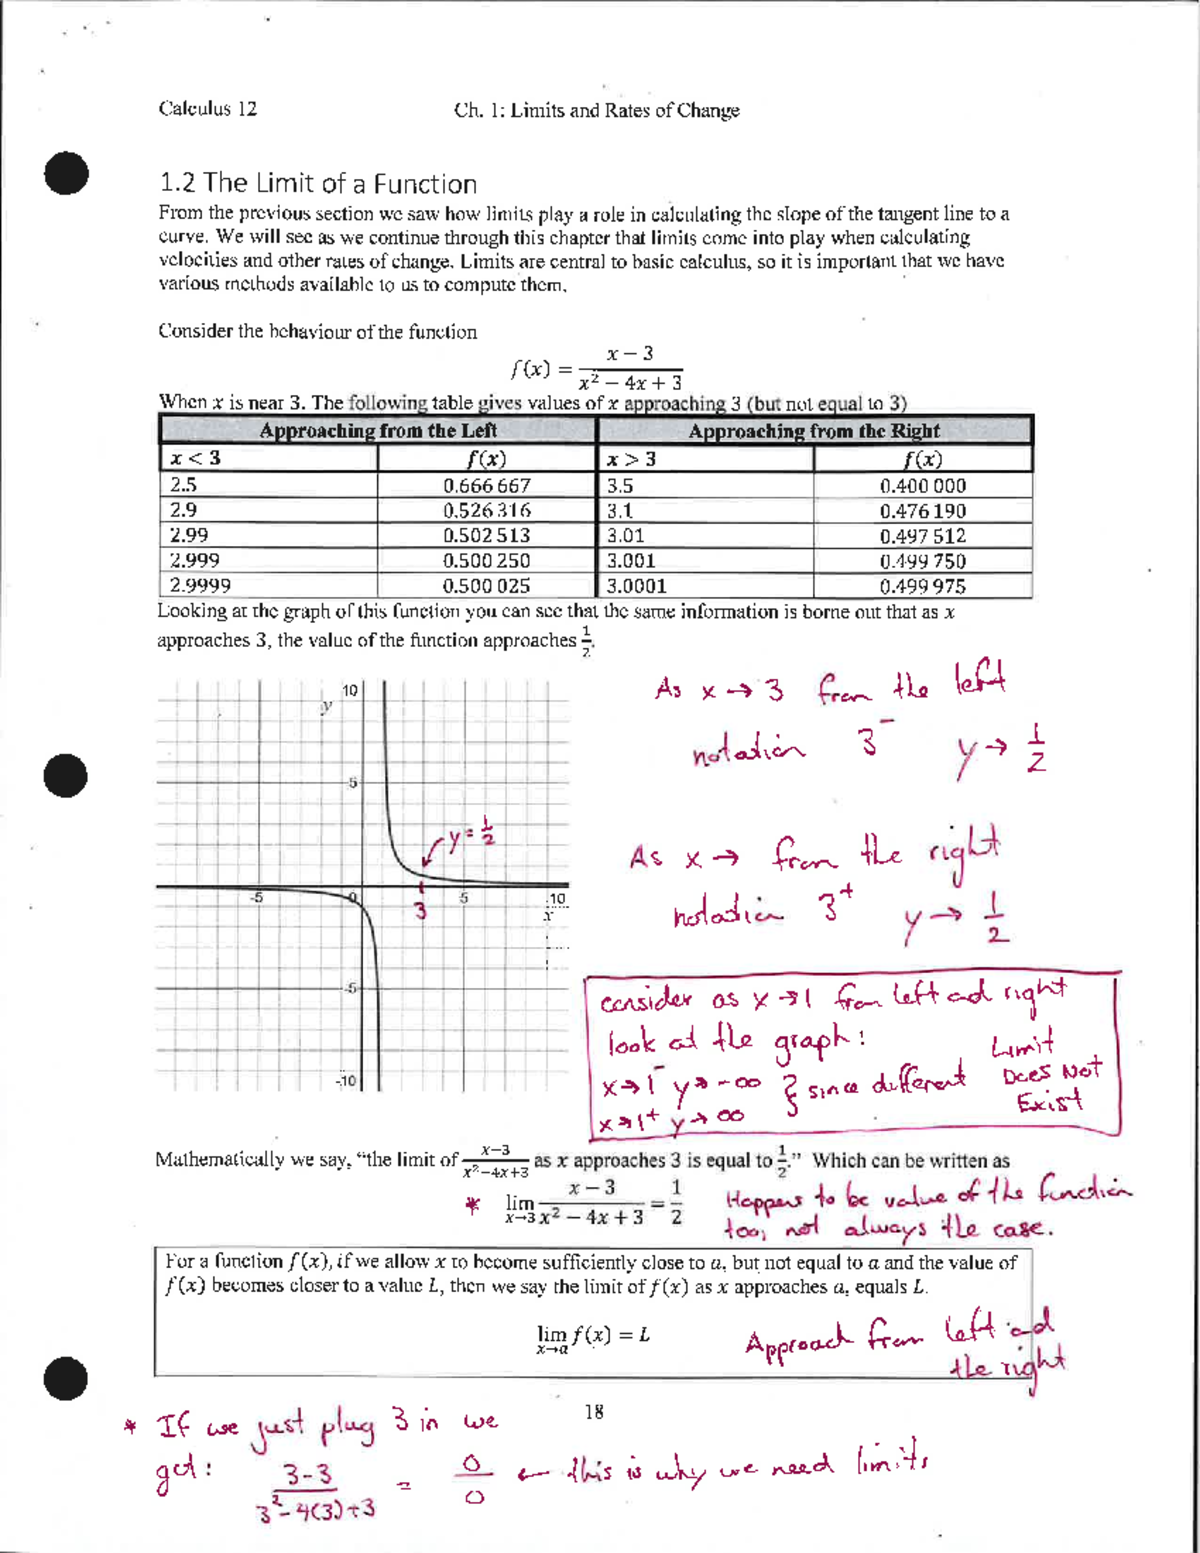 Calculus 12 Ch. 1: Limits and Rates of Change
1.2 The Limit of a Function
From the previous section we saw how limits play a role in calculating the slope of the tangent line to a
curve. We will see as we continue through this chapter that limits come into play when calculating
velocities and other rates of change. Limits are central to basic calculus, so it is important that we have
various methods available to us to compute them.
Consider the behaviour of the function
f(x) = (x − 3)/(x² − 4x + 3)
When x is near 3. The following table gives values of x approaching 3 (but not equal to 3)
Approaching from the Left Approaching from the Right
x < 3 f(x) x > 3 f(x)
2.5 0.666 667 3.5 0.400 000
2.9 0.526 316 3.1 0.476 190
2.99 0.502 513 3.01 0.497 512
2.999 0.500 250 3.001 0.499 750
2.9999 0.500 025 3.0001 0.499 975
Looking at the graph of this function you can see that the same information is borne out that as x
approaches 3, the value of the function approaches 1/2.
10
y
5
y = 1/2
-5 0 5 10
3 x
-5
-10
As x → 3 from the left
notation 3⁻ y → 1/2
As x → from the right
notation 3⁺ y → 1/2
consider as x → 1 from left and right
look at the graph:
x → 1⁻ y → -∞ } since different Limit Does Not Exist
x → 1⁺ y → ∞
Mathematically we say, “the limit of (x−3)/(x²−4x+3) as x approaches 3 is equal to 1/2.” Which can be written as
* lim x→3 (x − 3)/(x² − 4x + 3) = 1/2 Happens to be value of the function
too, not always the case.
For a function f(x), if we allow x to become sufficiently close to a, but not equal to a and the value of
f(x) becomes closer to a value L, then we say the limit of f(x) as x approaches a, equals L.
lim x→a f(x) = L Approach from left and
the right
18
* If we just plug 3 in we
get: (3-3)/(3²-4(3)+3) = 0/0 ← this is why we need limits